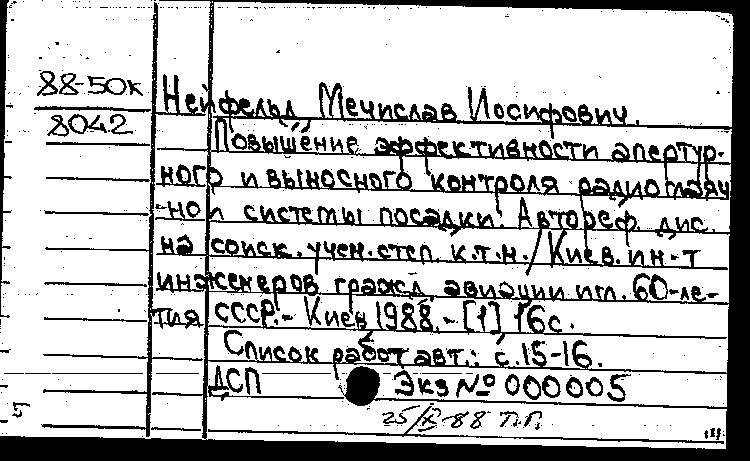 88-50к
8042
Нейфельд Мечислав Иосифович.
Повышение эффективности апертур-
ного и выносного контроля радиомаяч
-ной системы посадки: Автореф. дис.
на соиск. учен. степ. к.т.н./Киев. ин-т
инженеров гражд. авиации им. 60-ле-
тия СССР.- Киев 1988.- [1] 16с.
Список работ авт.: с.15-16.
ДСП Экз № 000005
5